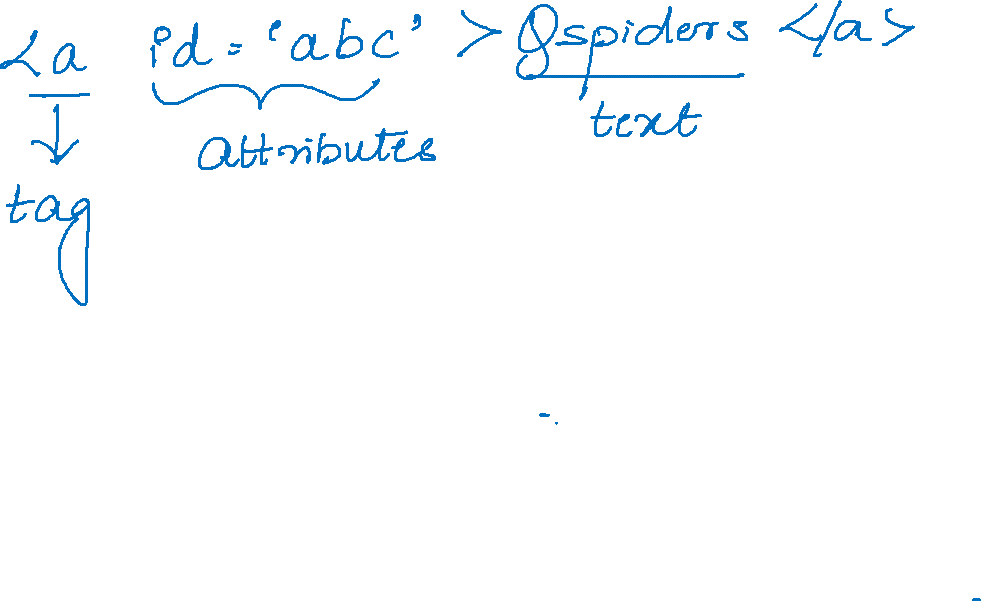 <a id = 'abc' > Qspiders </a>
attributes text
tag